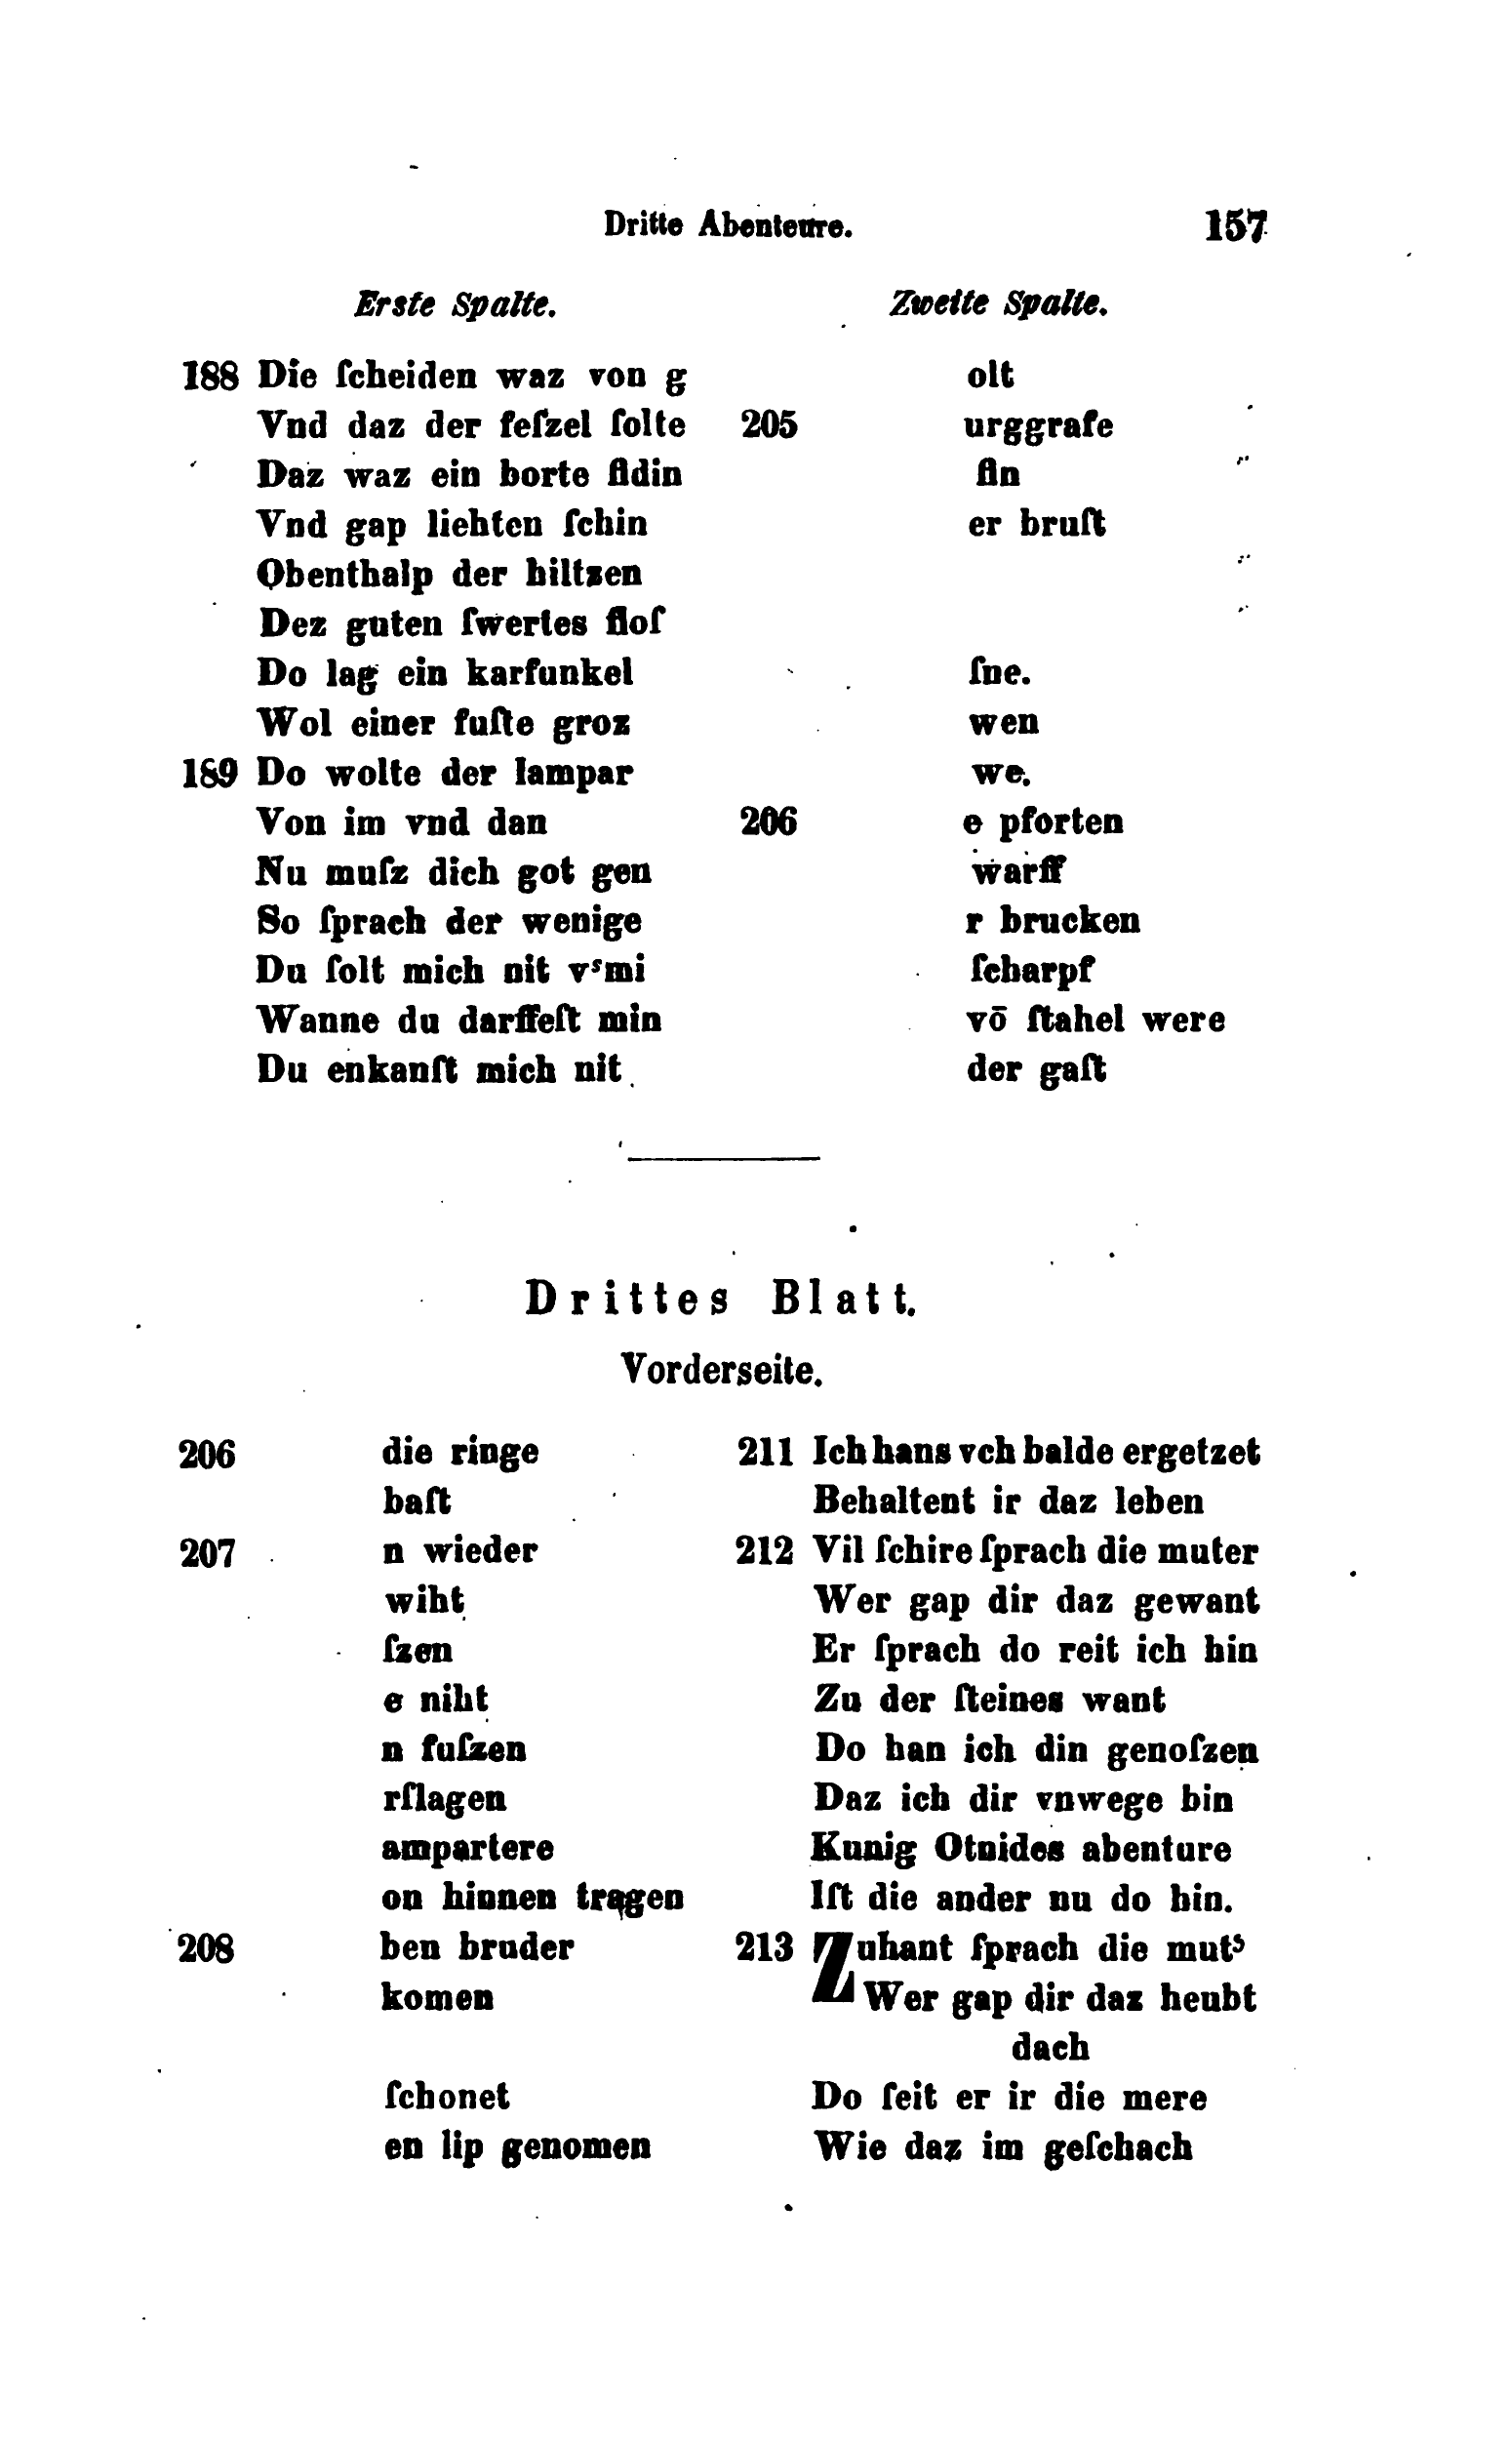 Dritte Abenteure. 157
Erste Spalte.
188 Die ſcheiden waz von g
Vnd daz der feſzel ſolte
Daz waz ein borte ſidin
Vnd gap liehten ſchin
Obenthalp der hiltzen
Dez guten ſwertes ſloſ
Do lag ein karfunkel
Wol einer fuſte groz
189 Do wolte der lampar
Von im vnd dan
Nu muſz dich got gen
So ſprach der wenige
Du ſolt mich nit vˢmi
Wanne du darffeſt min
Du enkanſt mich nit
Zweite Spalte.
olt
205 urggrafe
ſin
er bruſt
ſne.
wen
we.
206 e pforten
warff
r brucken
ſcharpf
vō ſtahel were
der gaſt
Drittes Blatt.
Vorderseite.
206 die ringe
baſt
207 n wieder
wiht
ſzen
e niht
n fuſzen
rſlagen
ampartere
on hinnen tragen
208 ben bruder
komen
ſchonet
en lip genomen
211 Ich hans vch balde ergetzet
Behaltent ir daz leben
212 Vil ſchire ſprach die muter
Wer gap dir daz gewant
Er ſprach do reit ich hin
Zu der ſteines want
Do han ich din genoſzen
Daz ich dir vnwege bin
Kunig Otnides abenture
Iſt die ander nu do hin.
213 Zuhant ſprach die mutˢ
Wer gap dir daz heubt
dach
Do ſeit er ir die mere
Wie daz im geſchach